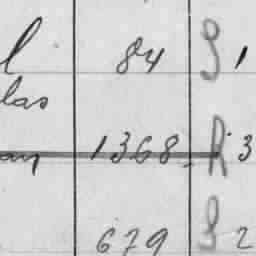 l 84 S 1
las
an 1368 R 3
679 S 2